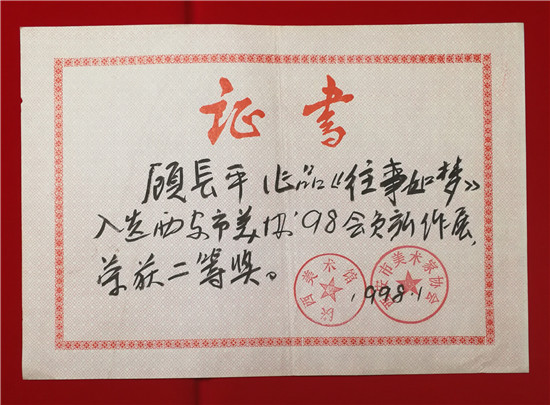 证书
顾長平 作品《往事如梦》
入选西安市美协'98会员新作展,
荣获二等奖。
西美术馆
西安市美术家协会
1998.1